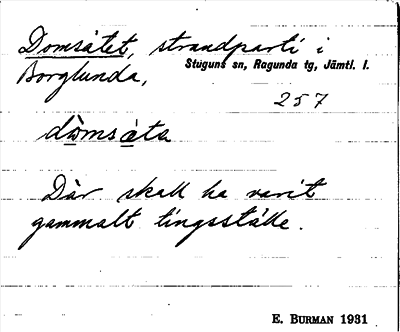 Domsätet, strandparti i
Borglunda, Stuguns sn, Ragunda tg, Jämtl. l.
257
dòmsàta
Där skall ha varit
gammalt tingsställe.
E. BURMAN 1931